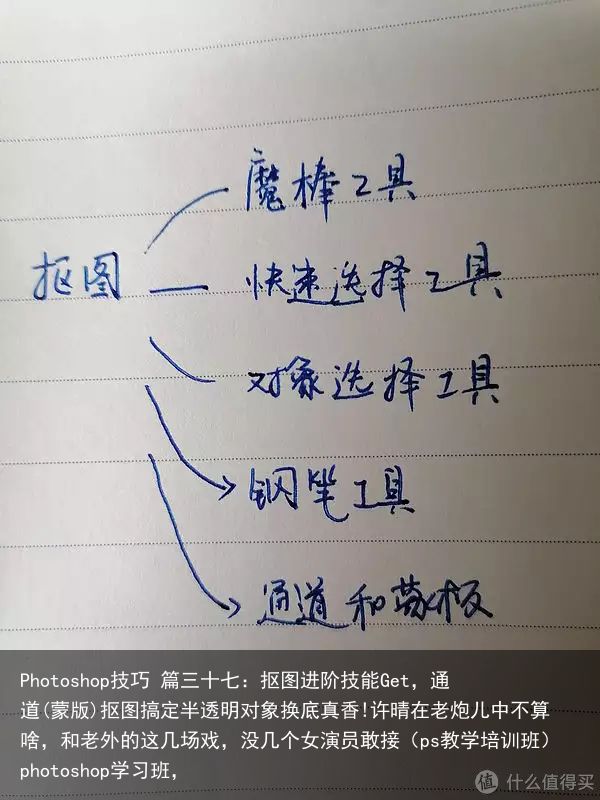 魔棒工具
抠图
快速选择工具
对象选择工具
钢笔工具
通道和蒙板
Photoshop技巧 篇三十七：抠图进阶技能Get，通
道(蒙版)抠图搞定半透明对象换底真香!许晴在老炮儿中不算
啥，和老外的这几场戏，没几个女演员敢接（ps教学培训班）
photoshop学习班，
值 什么值得买